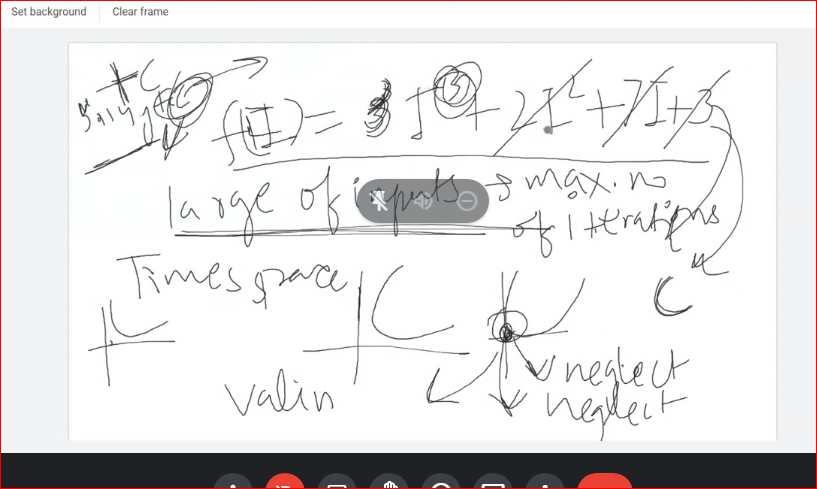 Set background Clear frame
+ C
f(I) = 3 I³ + 2I² + 7I + 3
large of inputs → max. no
of iterations
Time space
neglect
neglect